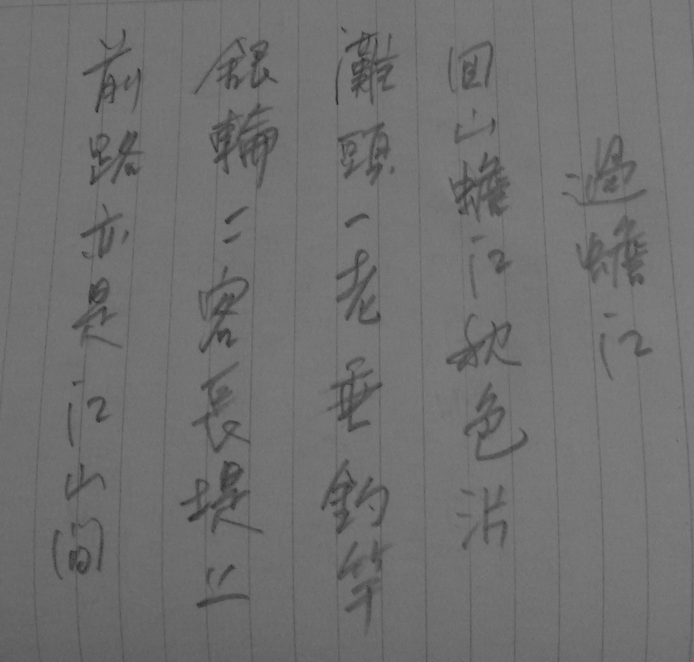 過蟾江
回山蟾江秋色泮
灘頭一老垂釣竿
銀輪二客長堤上
前路亦是江山間